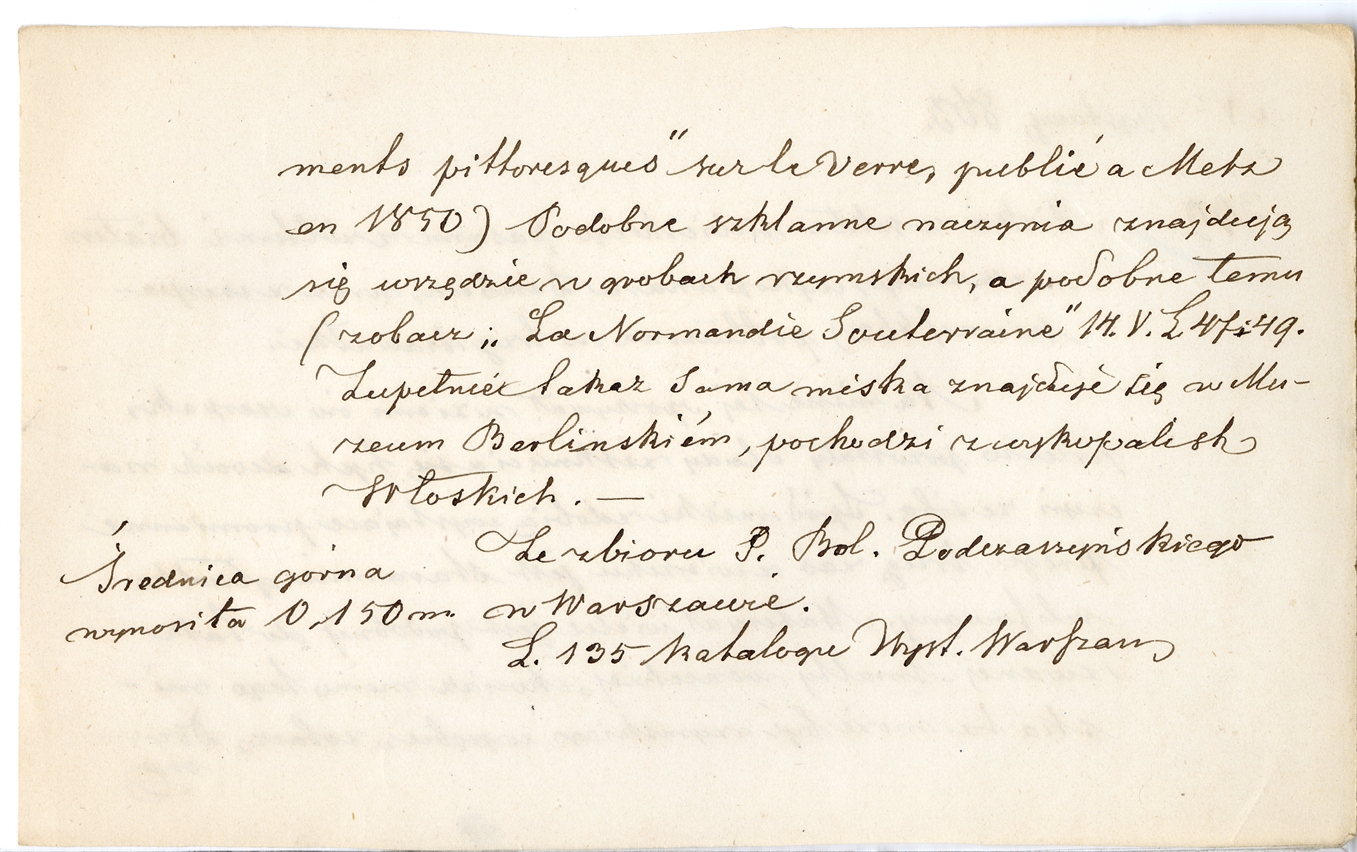 ments pittoresques" sur le Verre, publié a Metz
en 1850) Podobne szklanne naczynia znajdują
się wszędzie w grobach rzymskich, a podobne temu
(zobacz „La Normandie Souterraine" 14. V. L 47 i 49.
Zupełnie takaż sama miska znajduje się w Mu-
zeum Berlinskiém, pochodzi z wykopalisk
Włoskich. —
Ze zbioru P. Bol. Podczaszyńskiego
w Warszawie.
Średnica górna
wynosiła 0,150 m.
L. 135 katalogu Wyst. Warszaw